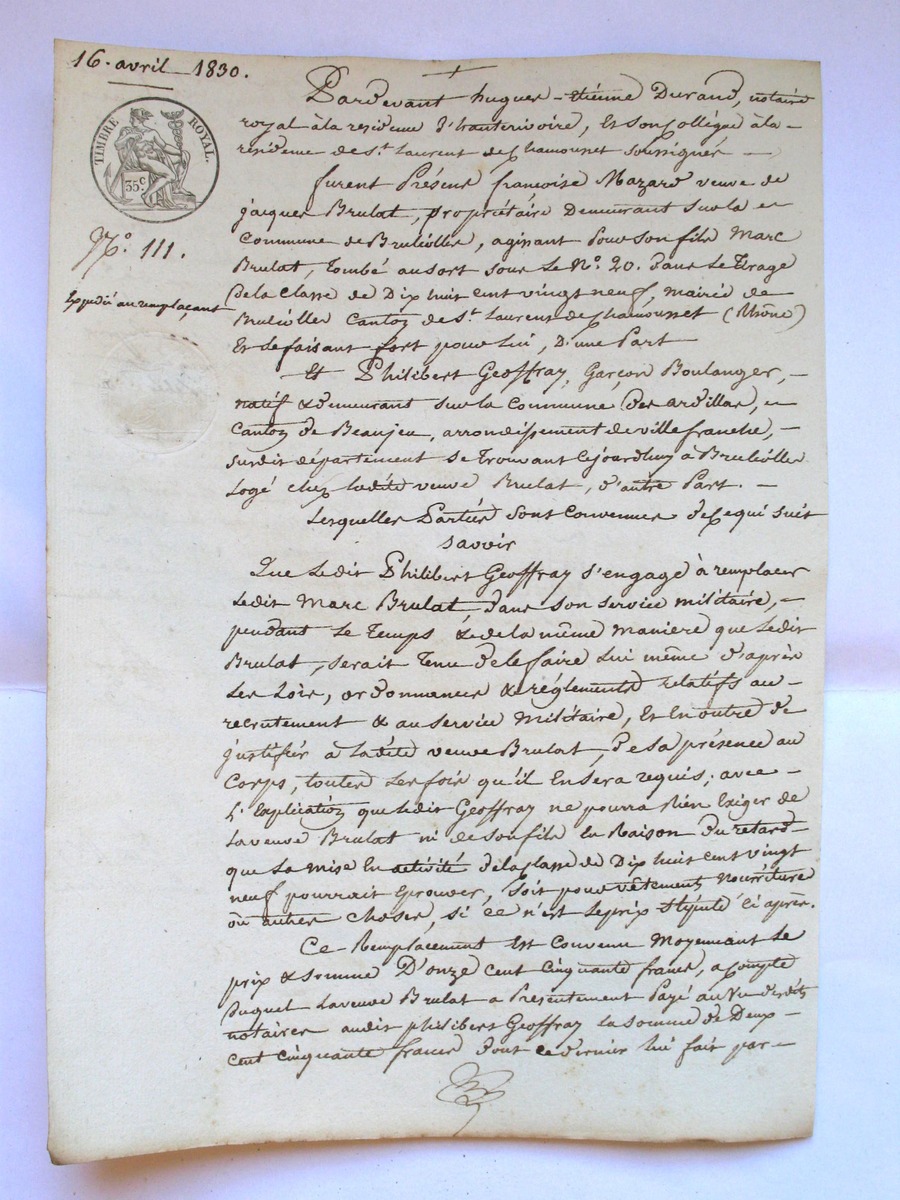 16. avril 1830.
TIMBRE ROYAL.
35 c
N.° 111.
Expédié au remplaçant
Pardevant hugues-étienne Durand, notaire
royal à la residence d'hauterivoire, et son collégue à la
residence de St. Laurent de Chamousset soussignés
furent Présens françoise Mazard veuve de
jacques Brulat, propriétaire Demeurant sur la
Commune de Brullioles, agissant Pour son fils Marc
Brulat, tombé au sort sous le N°. 20. Dans le Tirage
de la Classe de Dix huit cent vingt neuf, mairie de
Brullioles Canton de St. Laurent de Chamousset (Rhône)
Et se faisant fort pour lui, D'une Part
Et Philibert Geoffray, Garçon Boulanger,
natif & demeurant sur la Commune des ardillas,
Canton de Beaujeu, arrondissement de villefranche,
susdit département se trouvant cejourd'huy à Brullioles
Logé chez ladite veuve Brulat, d'autre Part.
Lesquelles Parties sont Convenues de Ce qui suit
savoir
Que Ledit Philibert Geoffray s'engage à remplacer
Ledit Marc Brulat, Dans son service militaire,
pendant Le Temps & de la même maniere que Ledit
Brulat, serait Tenu de le faire Lui même d'après
Les Loix, ordonnances & réglements relatifs au
recrutement & au service Militaire, Et En outre de
justifier à Ladite veuve Brulat, De sa présence au
Corps, toutes Les fois qu'il En sera requis; avec
L'Explication que Ledit Geoffray ne pourra Rien Exiger de
La veuve Brulat ni de son fils En Raison Du retard
que La mise En activité de la Classe de Dix huit cent vingt
neuf pourrait Eprouver, soit pour vêtement, nourriture
ou autres choses, si ce n'est le prix stipulé ci après.
Ce Remplacement Est Convenu Moyennant Le
prix & somme D'onze cent Cinquante francs, a Compte
Duquel La veuve Brulat a Présentement Payé au Vu desdits
notaires audit philibert Geoffray La somme de Deux
cent Cinquante francs dont ce dernier lui fait par